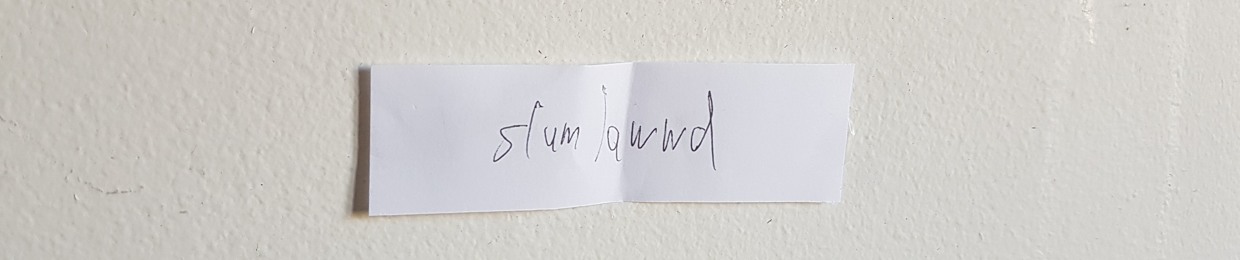 slum lawwd